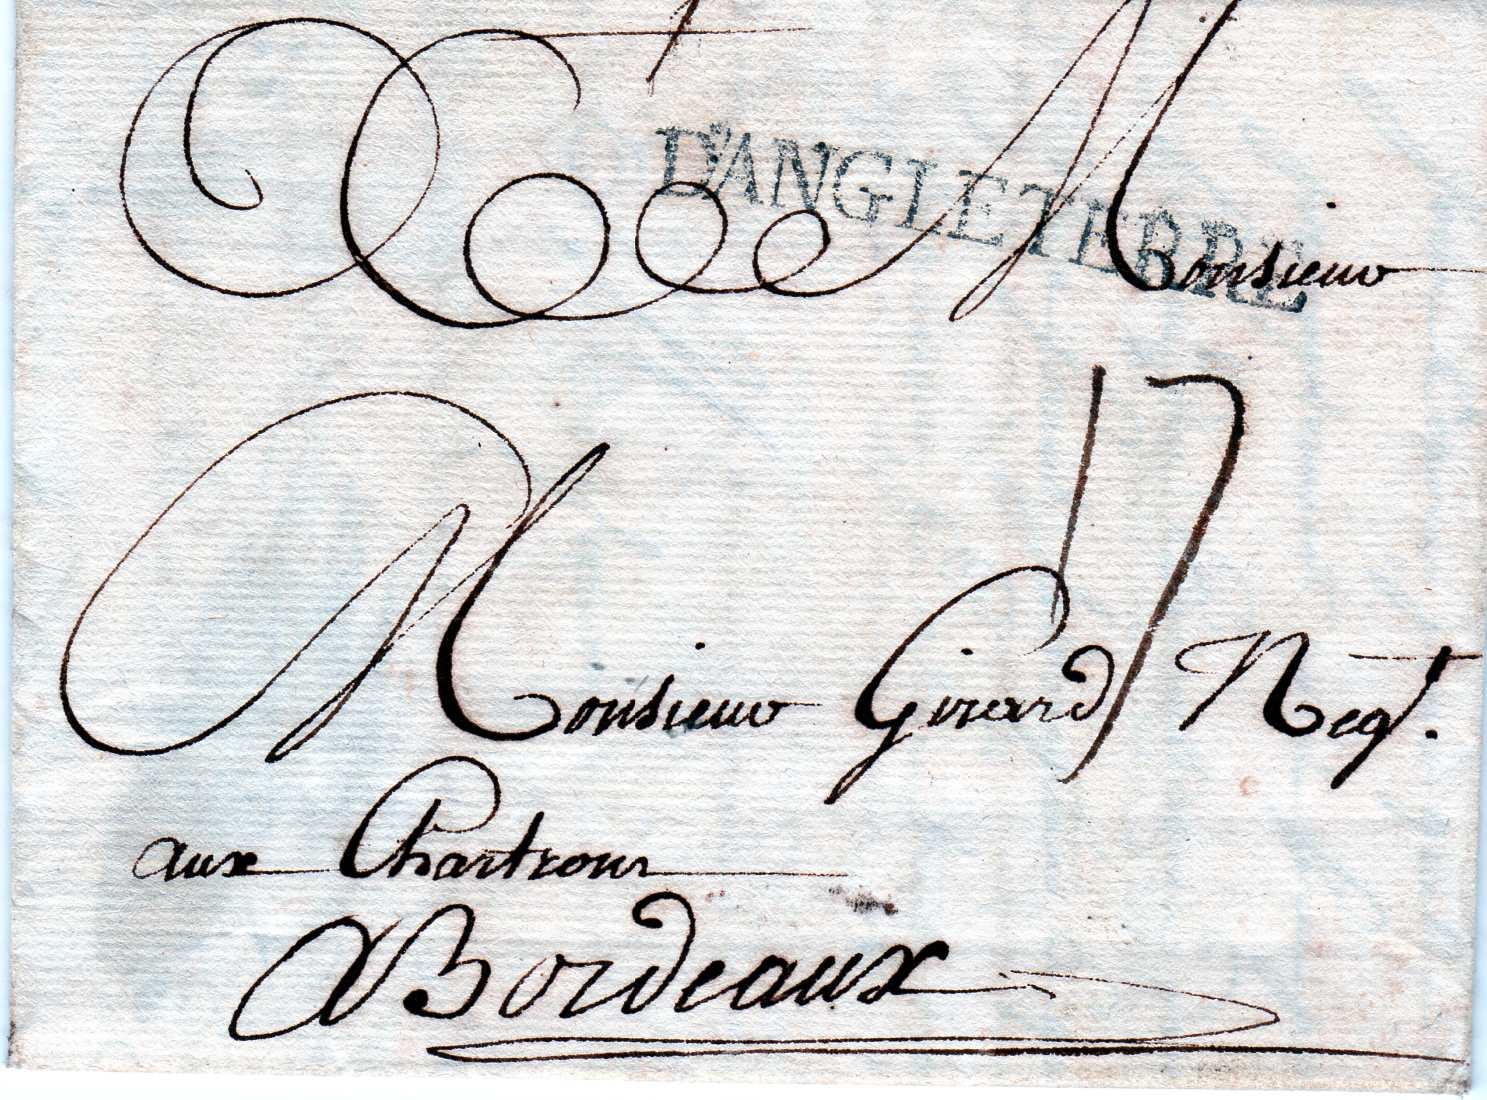 D'ANGLETERRE
Monsieur
17
Monsieur Girard Negt.
aux Chartrons
A Bordeaux